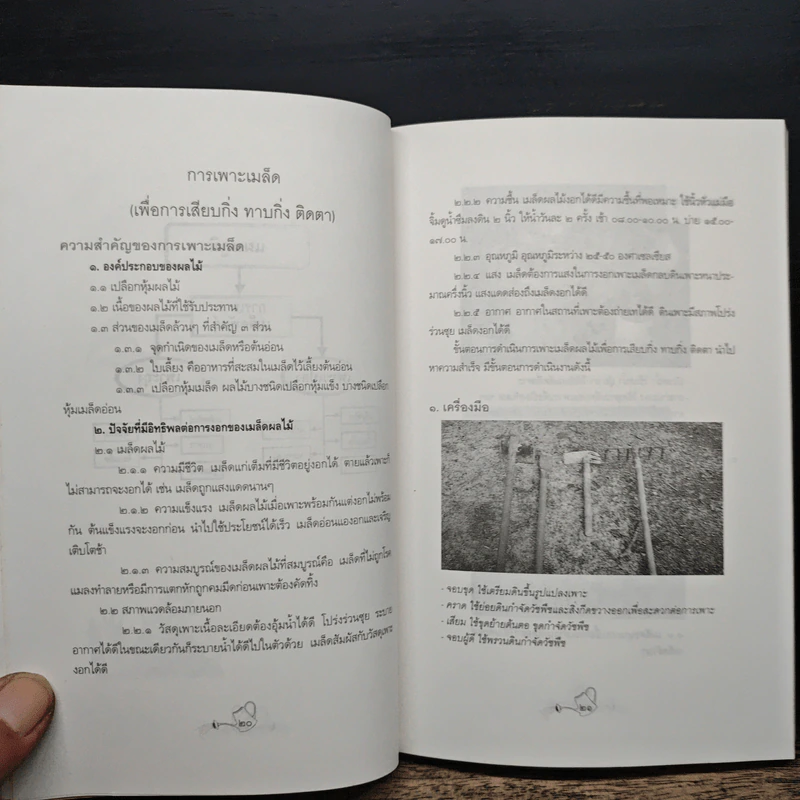 การเพาะเมล็ด
(เพื่อการเสียบกิ่ง ทาบกิ่ง ติดตา)
ความสำคัญของการเพาะเมล็ด
๑. องค์ประกอบของผลไม้
๑.๑ เปลือกหุ้มผลไม้
๑.๒ เนื้อของผลไม้ที่ใช้รับประทาน
๑.๓ ส่วนของเมล็ดล้วนๆ ที่สำคัญ ๓ ส่วน
๑.๓.๑ จุดกำเนิดของเมล็ดหรือต้นอ่อน
๑.๓.๒ ใบเลี้ยง คืออาหารที่สะสมในเมล็ดไว้เลี้ยงต้นอ่อน
๑.๓.๓ เปลือกหุ้มเมล็ด ผลไม้บางชนิดเปลือกหุ้มแข็ง บางชนิดเปลือก
หุ้มเมล็ดอ่อน
๒. ปัจจัยที่มีอิทธิพลต่อการงอกของเมล็ดผลไม้
๒.๑ เมล็ดผลไม้
๒.๑.๑ ความมีชีวิต เมล็ดแก่เต็มที่มีชีวิตอยู่งอกได้ ตายแล้วเพาะก็
ไม่สามารถจะงอกได้ เช่น เมล็ดถูกแสงแดดนานๆ
๒.๑.๒ ความแข็งแรง เมล็ดผลไม้เมื่อเพาะพร้อมกันแต่งอกไม่พร้อม
กัน ต้นแข็งแรงจะงอกก่อน นำไปใช้ประโยชน์ได้เร็ว เมล็ดอ่อนแองอกและเจริญ
เติบโตช้า
๒.๑.๓ ความสมบูรณ์ของเมล็ดผลไม้ที่สมบูรณ์คือ เมล็ดที่ไม่ถูกโรค
แมลงทำลายหรือมีการแตกหักถูกคมมีดก่อนเพาะต้องคัดทิ้ง
๒.๒ สภาพแวดล้อมภายนอก
๒.๒.๑ วัสดุเพาะเนื้อละเอียดต้องอุ้มน้ำได้ดี โปร่งร่วนซุย ระบาย
อากาศได้ดีในขณะเดียวกันก็ระบายน้ำได้ดีไปในตัวด้วย เมล็ดสัมผัสกับวัสดุเพาะ
งอกได้ดี
๒๐
๒.๒.๒ ความชื้น เมล็ดผลไม้งอกได้ดีมีความชื้นที่พอเหมาะ ใช้นิ้วหัวแม่มือ
จิ้มดูน้ำซึมลงดิน ๒ นิ้ว ให้น้ำวันละ ๒ ครั้ง เช้า ๐๘.๐๐-๑๐.๐๐ น. บ่าย ๑๕.๐๐-
๑๗.๐๐ น.
๒.๒.๓ อุณหภูมิ อุณหภูมิระหว่าง ๒๕-๕๐ องศาเซลเซียส
๒.๒.๔ แสง เมล็ดต้องการแสงในการงอกเพาะเมล็ดกลบดินเพาะหนาประ-
มาณครึ่งนิ้ว แสงแดดส่องถึงเมล็ดงอกได้ดี
๒.๒.๕ อากาศ อากาศในสถานที่เพาะต้องถ่ายเทได้ดี ดินเพาะมีสภาพโปร่ง
ร่วนซุย เมล็ดงอกได้ดี
ขั้นตอนการดำเนินการเพาะเมล็ดผลไม้เพื่อการเสียบกิ่ง ทาบกิ่ง ติดตา นำไป
หาความสำเร็จ มีขั้นตอนการดำเนินงานดังนี้
๑. เครื่องมือ
- จอบขุด ใช้เตรียมดินขึ้นรูปแปลงเพาะ
- คราด ใช้ย่อยดินกำจัดวัชพืชและสิ่งกีดขวางออกเพื่อสะดวกต่อการเพาะ
- เสียม ใช้ขุดย้ายต้นตอ ขุดกำจัดวัชพืช
- จอบผู้ดี ใช้พรวนดินกำจัดวัชพืช
๒๑